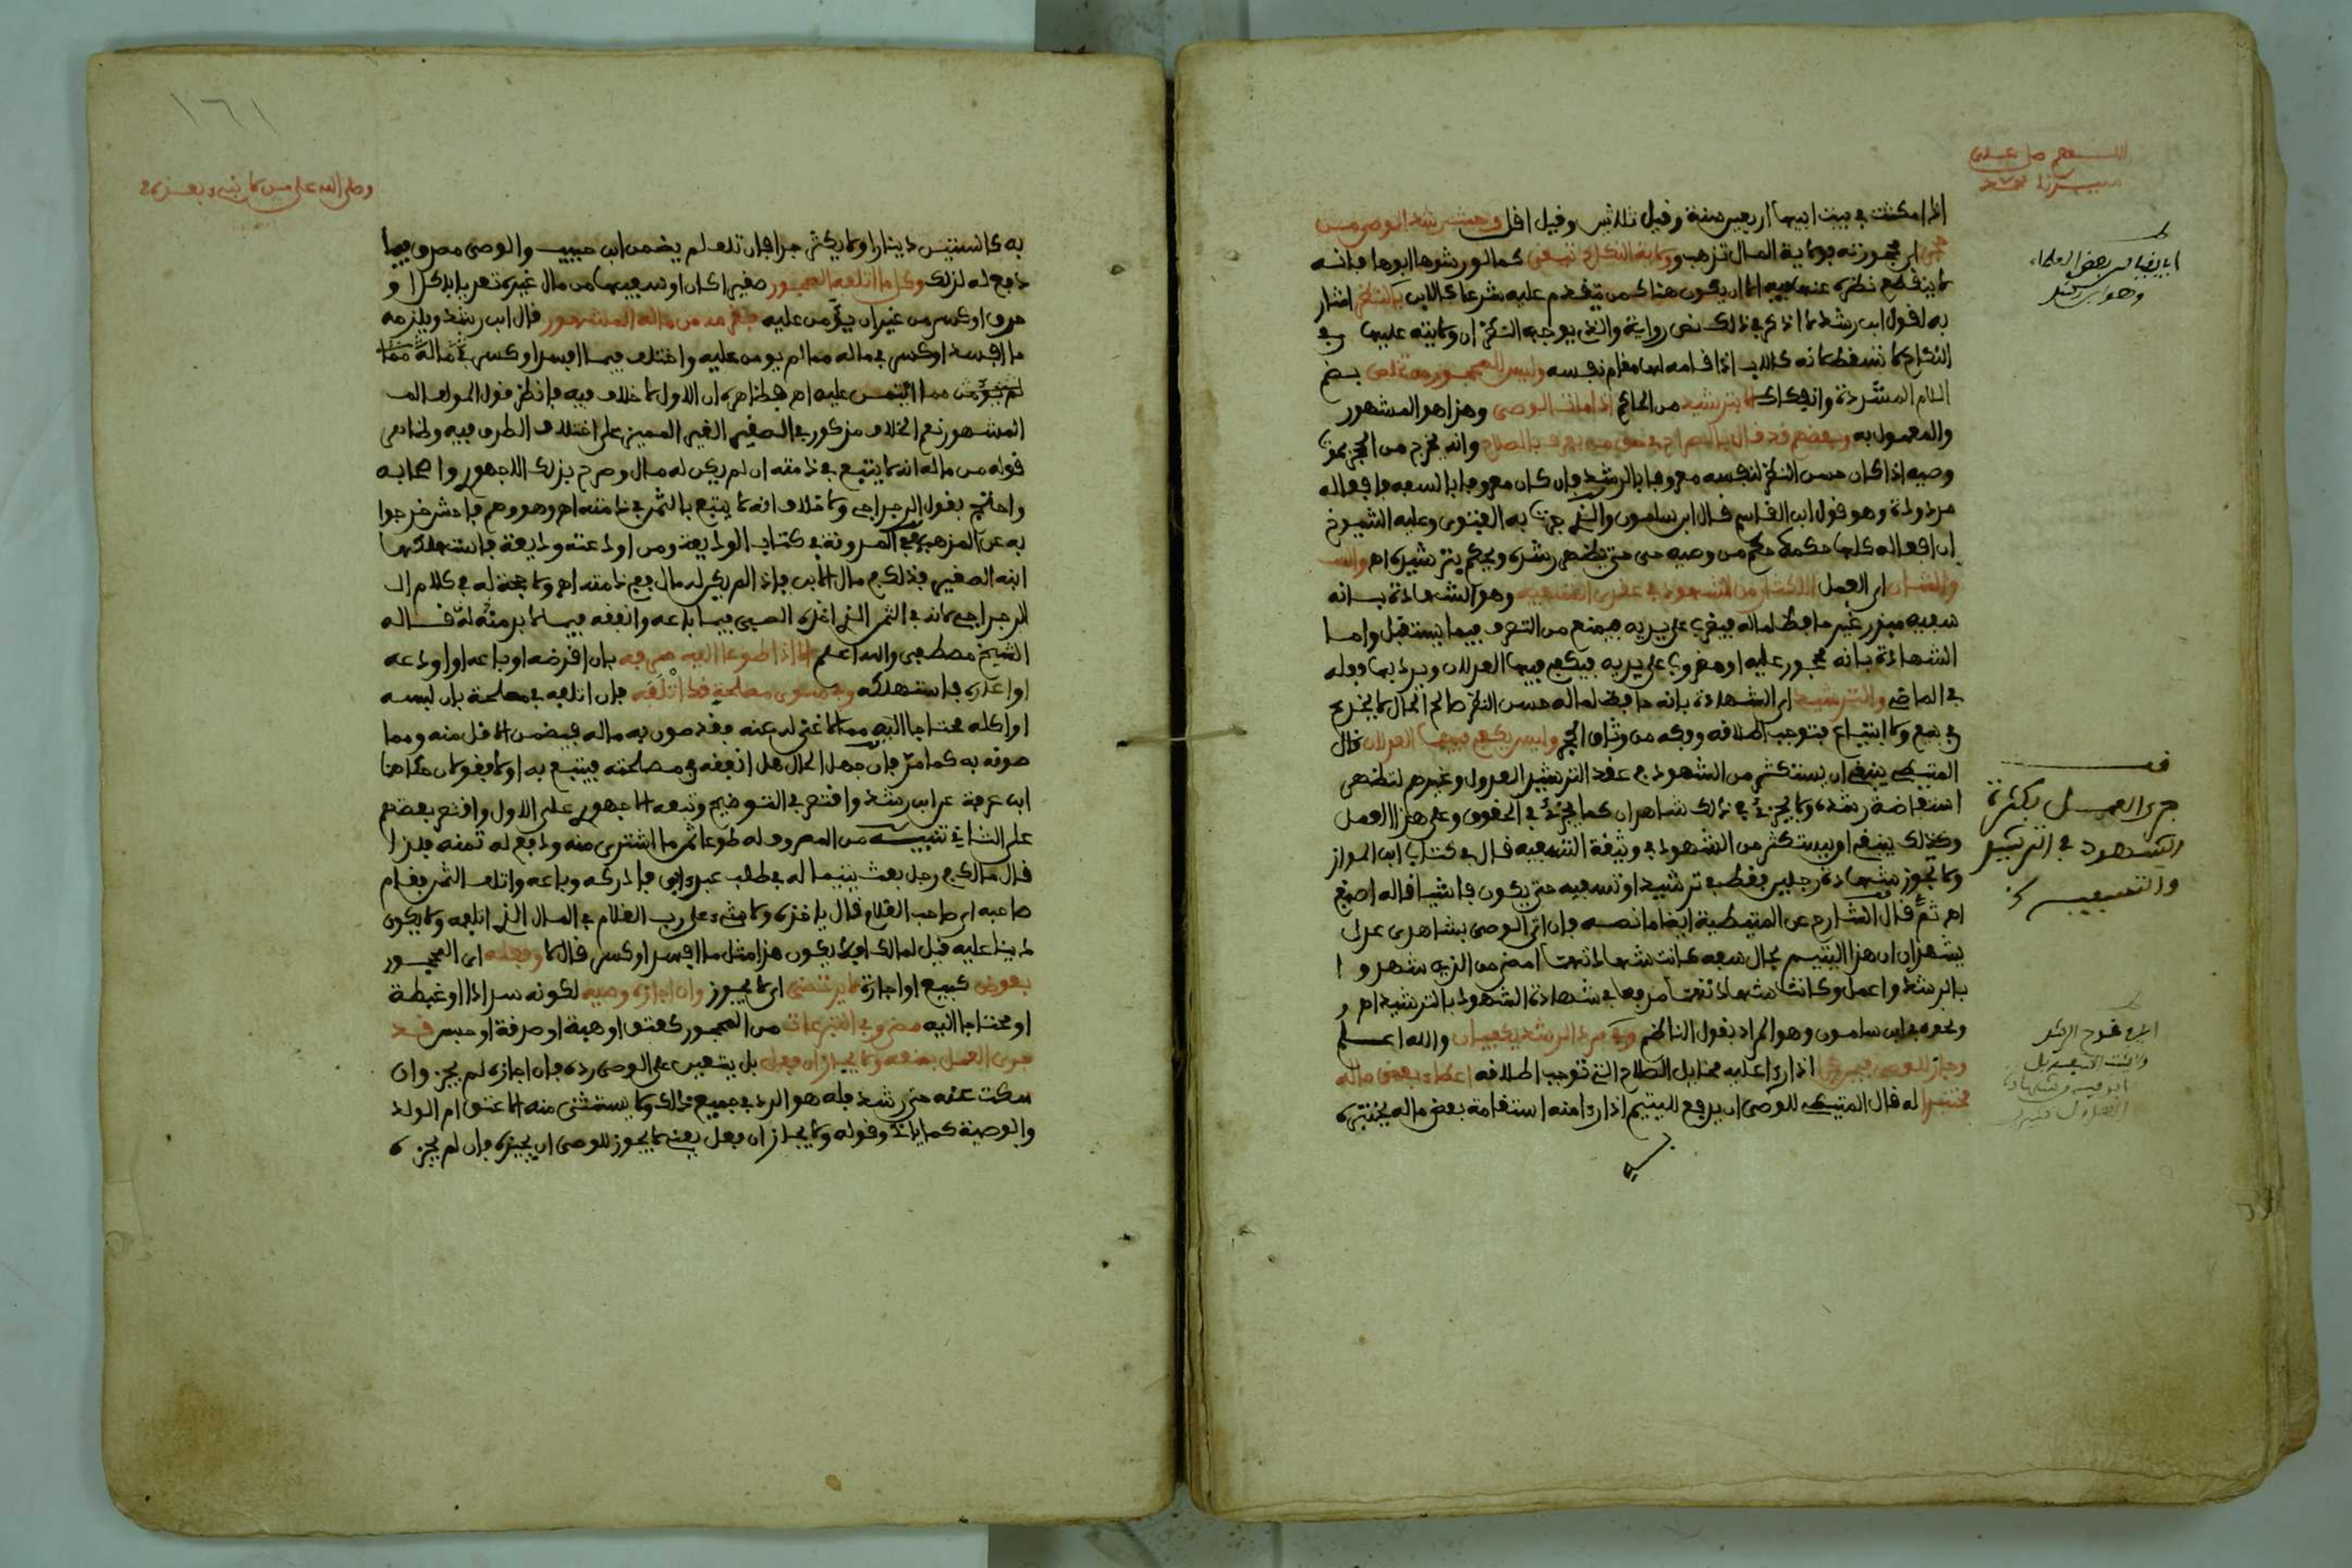 اللهم صل على
سيدنا محمد
اذا مكثت في بيت ابيها اربعين سنة وقيل ثلاثين وقيل اقل وحيث رشد الوصي من
حجر اي محجورته فولاية المال تذهب وولاية النكاح تبقى كما لو رشدها ابوها فانه
لا ينقطع نظره عنها فيه الا ان يكون هناك من يتقدم عليه شرعا كالابن بالنظر اشار
به لقول ابن رشد لا اذكر في ذلك نص رواية والذي يوجبه النظر ان ولايته عليها في
النكاح لا تسقط لانه كالاب اذا اقامه لها مقام نفسه وليس للمحجور من تخلص بضم
اللام المشددة وانفكاك الا بترشيد من الحاكم اذا مات الوصي وهذا هو المشهور
والمعمول به وبعضهم قد قال بالسراح في حق من يعرف بالصلاح وانه يخرج من الحجر بموت
وصيه اذا كان حسن النظر لنفسه معروفا بالرشد فان كان معروفا بالسفه فافعاله
مردودة وهو قول ابن القاسم قال ابن سلمون والذي جرت به الفتوى وعليه الشيوخ
ان افعاله كلها حكمه حكم من وصيه حي حتى يظهر رشده ويحكم بترشيده اه والشان
والشان اي العمل الاكثار من الشهود في عقدي التسفيه وهو الشهادة بانه
سفيه مبذر غير حافظ لماله فيضرب على يديه فيمنع من التصرف فيما يستقبل واما
الشهادة بانه محجور عليه او مضروب على يديه فيكفي فيها العدلان ويرد بها فعله
في الماضي والترشيد اي الشهادة بانه حافظ لماله حسن النظر صالح الحال لا يخدع
في بيع ولا ابتياع فتوجب اطلاقه وفكه من وثاق الحجر وليس يكفي فيهما العدلان قال
المتيطي ينبغي ان يستكثر من الشهود في عقد الترشيد العدول وغيرهم لتظهر
استفاضة رشده ولا يجزئ في ذلك شاهدان كما يجزئ في الحقوق وعلى هذا العمل
وكذلك ينبغي ان يستكثر من الشهود في وثيقة التسفيه قال في كتاب ابن المواز
ولا تجوز شهادة رجلين فقط في ترشيد او تسفيه حتى يكون فاشيا قاله اصبغ
اه ثم قال الشارح عن المتيطية ايضا ما نصه فان اتى الوصي بشاهدي عدل
يشهدان ان هذا اليتيم بحال سفه كانت شهادتهما امضى من الذين شهدوا
بالرشد واعمل وكانت شهادتهما مدفعا في شهادة الشهود بالترشيد اه و
ونحوه في ابن سلمون وهو المراد بقول الناظم وفي مرد الرشد يكفيان والله اعلم
وجاز للوصي فيمن حجرا اذا راى عليه مخايل الصلاح التي توجب اطلاقه اعطاء بعض ماله
مختبرا له قال المتيطي للوصي ان يدفع لليتيم اذا راى منه استقامة بعض ماله يختبره
به
قف
جرى العمل بكثرة
الشهود في الترشيد
والتسفيه
١٦١
وصلى الله على من لا نبي بعده
به كالستين دينارا ولا يكثر جدا فان تلف لم يضمن ابن حبيب والوصي مصدق فيما
دفع له لذلك وكل ما اتلفه المحجور صغيرا كان او سفيها من مال غيره تعديا بذكر او
حرق او كسر من غير ان يؤمن عليه فغرمه من ماله المشهور قال ابن رشد ويلزمه
ما افسد او كسر في ماله مما لم يومن عليه واختلف فيما افسد او كسر في ماله مما
لم يؤمن مما ائتمن عليه اه فظاهره ان الاول لا خلاف فيه فانظر قول المولف المـ
المشهور نعم الخلاف مذكور في الصغير الغير المميز على اختلاف الطرق فيه وظاهر
قوله من ماله انه لا يتبع في ذمته ان لم يكن له مال وصرح بذلك الاجهوري واصحابه
واحتج بقول الرجراجي ولا خلاف انه لا يتبع بالثمن في ذمته اه وهو وهم فاحش خرجوا
به عن المذهب ففي المدونة في كتاب الوديعة ومن اودعته وديعة فاستهلكها
ابنه الصغير فذلك في مال الابن فاذا لم يكن له مال ففي ذمته اه ولا حجة له في كلام الـ
الرجراجي لانه في الثمن الذي اخذه الصبي فيما باعه وانفقه فيما لا بد منه له قاله
الشيخ مصطفى والله اعلم الا اذا طوعا اليه صرفه بان اقرضه او باعه او اودعه
او اعاره فاستهلكه وفي سوى مصلحة قد اتلفه فان اتلفه في مصلحة بان لبسه
او اكله محتاجا اليه مما لا غنى له عنه فقد صون به ماله فيضمن الاقل منه ومما
صونه به كما مر فان جهل الحال هل انفقه في مصلحته فيتبع به او لا فقولان حكاهما
ابن عرفة عن ابن رشد واقتصر في التوضيح وتبعه الاجهوري على الاول واقتصر بعضهم
على الثاني تنبيـــه من المصروف له طوعا ثمن ما اشترى منه ودفع له ثمنه فلذا
قال مالك في رجل بعث يتيما له في طلب عبد ابق فادركه وباعه واتلف الثمن فقام
صاحبه اي صاحب الغلام قال ياخذه ولا شيء على رب الغلام في المال الذي اتلفه ولا يكون
دينا عليه قيل لمالك افلا يكون هذا مثل ما افسد او كسر قال لا وفعله اي المحجور
بعوض كبيع او اجارة لا يرتضى اي لا يجوز وان اجازه وصيه لكونه سدادا او غبطة
او محتاجا اليه مضى وفي التبرعات من المحجور كعتق او هبة او صدقة او حبس قد
جرى العمل بمنعه ولا يجاز ان فعل بل يتعين على الوصي رده فان اجازه لم يجز وان
سكت عنه حتى رشد فله هو الرد في جميع ذلك ولا يستثنى منه الا عتق ام الولد
والوصية كما ياتي وقوله ولا يجاز ان فعل يعني لا يجوز للوصي ان يجيزه فان لم يجزه